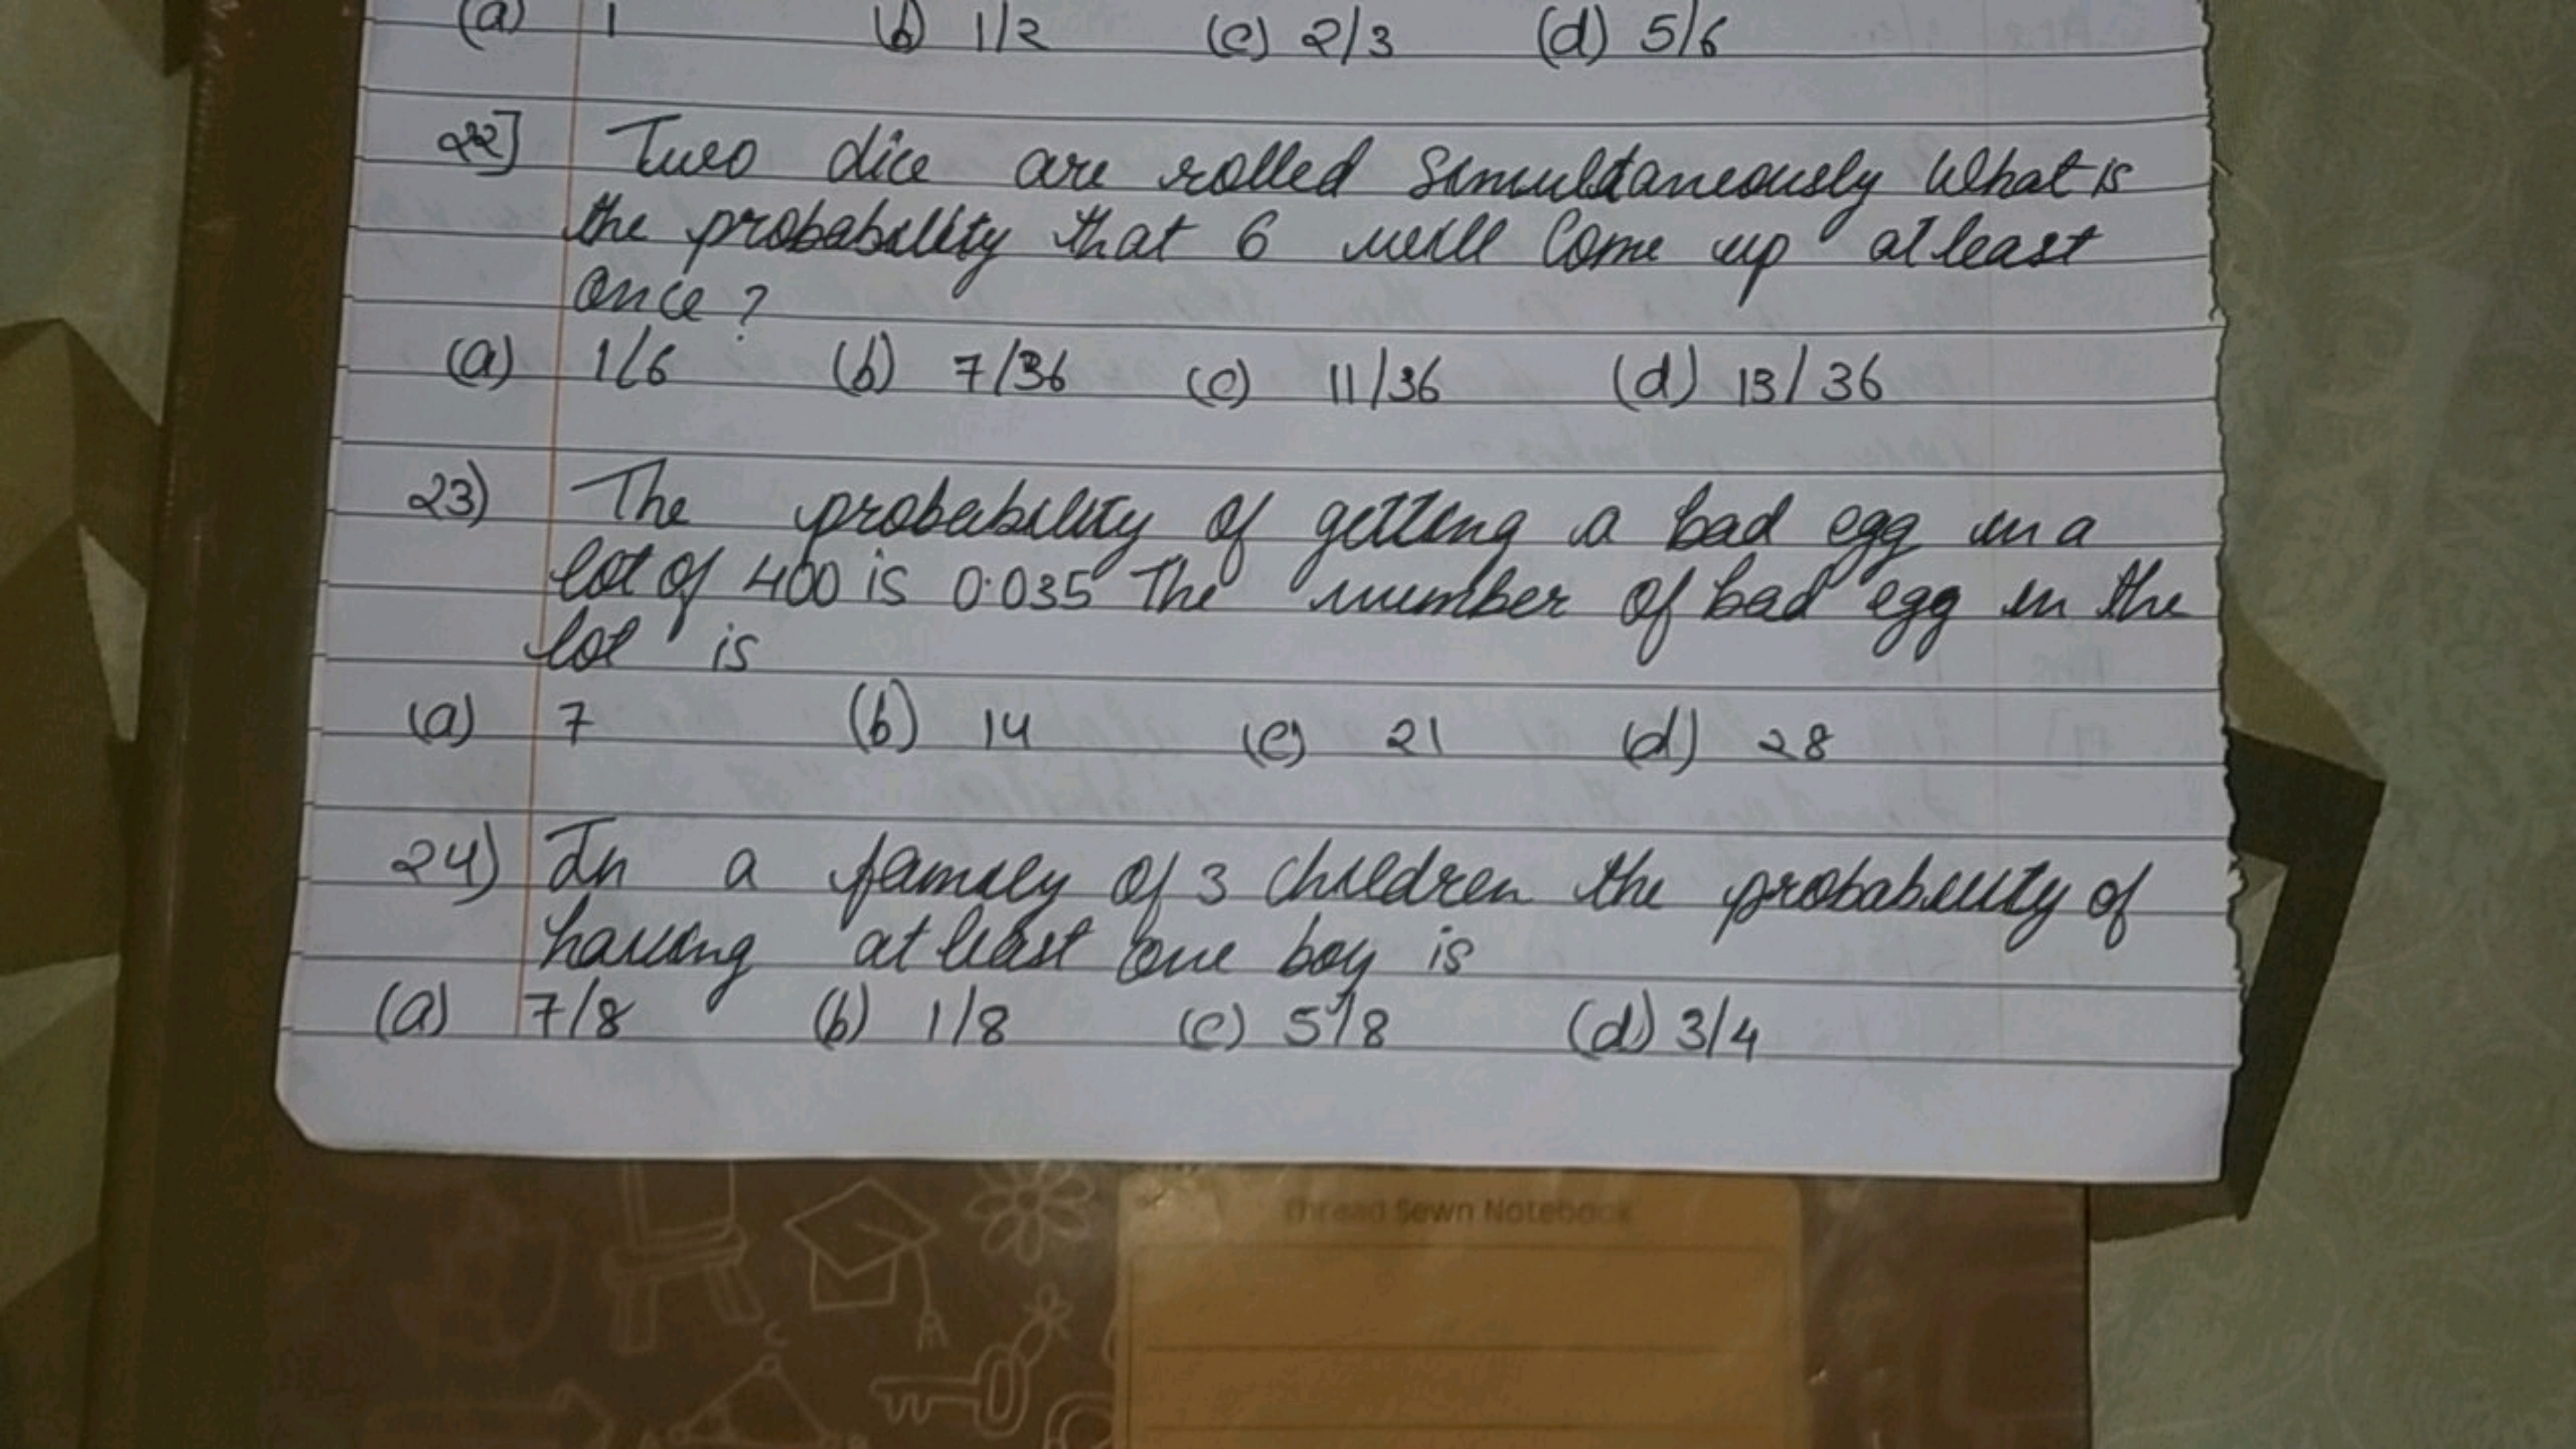 (a) 1 (b) 1/2 (c) 2/3 (d) 5/6
22] Two dice are rolled simultaneously What is
the probability that 6 will Come up atleast
once?
(a) 1/6 (b) 7/36 (c) 11/36 (d) 13/36
23) The probability of getting a bad egg in a
lot of 400 is 0.035 The number of bad egg in the
lot is
(a) 7 (b) 14 (c) 21 (d) 28
24) In a family of 3 children the probability of
having atleast one boy is
(a) 7/8 (b) 1/8 (c) 5/8 (d) 3/4
Thread Sewn Notebook